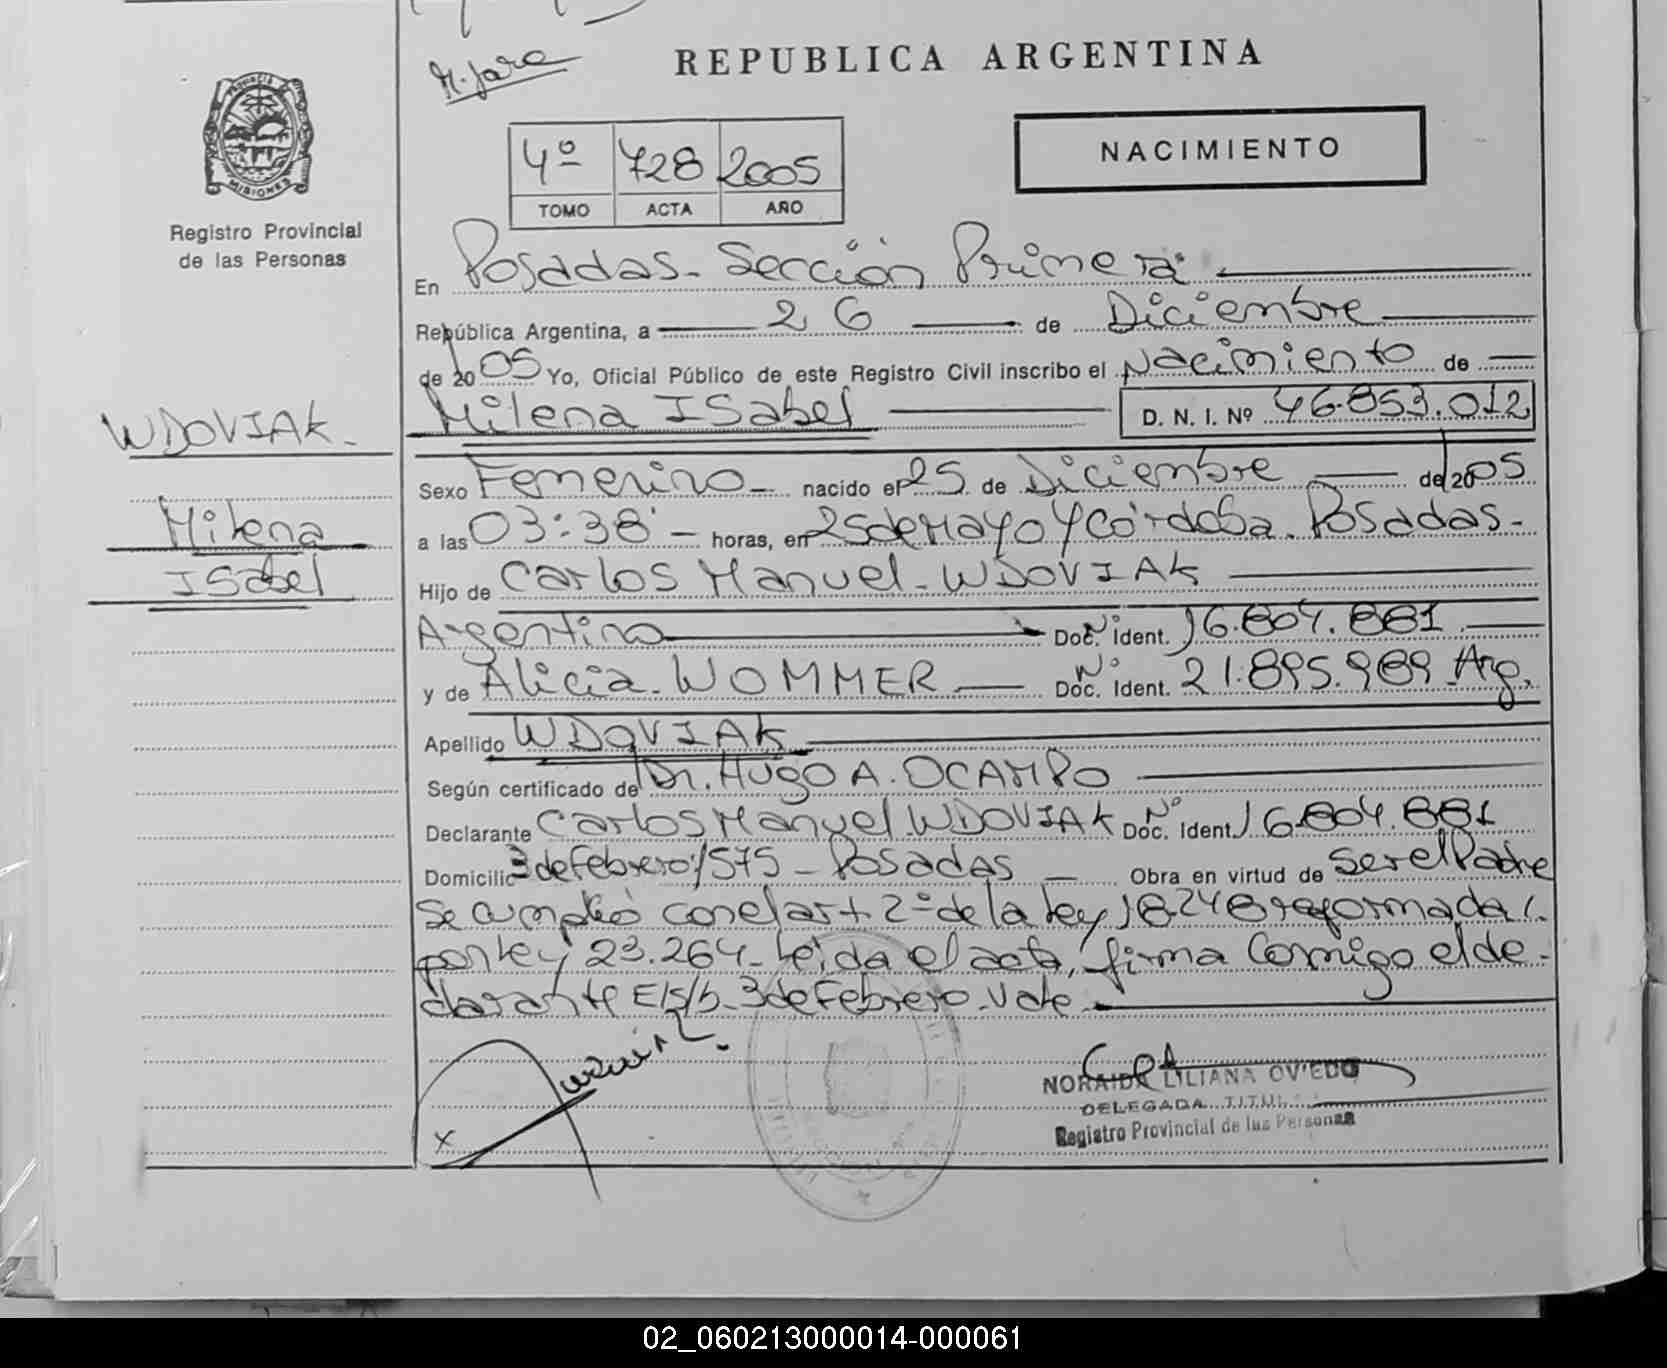 M. Jara
REPUBLICA ARGENTINA
NACIMIENTO
4º 728 2005
TOMO ACTA AÑO
MISIONES
Registro Provincial
de las Personas
En Posadas - Sección Primera
República Argentina, a 26 de Diciembre
de 2005 Yo, Oficial Público de este Registro Civil inscribo el Nacimiento de
Milena ISabel D. N. I. Nº 46.853.012
WDOVIAK -
Milena
ISabel
Sexo Femenino - nacido el 25 de Diciembre de 2005
a las 03:38' - horas, en 25 de Mayo y Córdoba. Posadas -
Hijo de Carlos Manuel - WDOVIAK
Argentino Doc. Nº Ident. 16.804.881
y de Alicia - WOMMER Doc. Nº Ident. 21.895.989 Arg.
Apellido WDOVIAK
Según certificado de Dr. Hugo A. OCAMPO
Declarante Carlos Manuel WDOVIAK Doc. Nº Ident. 16.804.881
Domicilio 3 de Febrero 1575 - Posadas - Obra en virtud de Ser el Padre
Se cumplió con el art 2º de la Ley 18.248 reformada
por Ley 23.264 - Leida el acta, firma Conmigo el de-
clarante E/S/b - 3 de Febrero - Vale
x
NORAIDA LILIANA OVIEDO
DELEGADA TITUL
Registro Provincial de las Personas
02_060213000014-000061